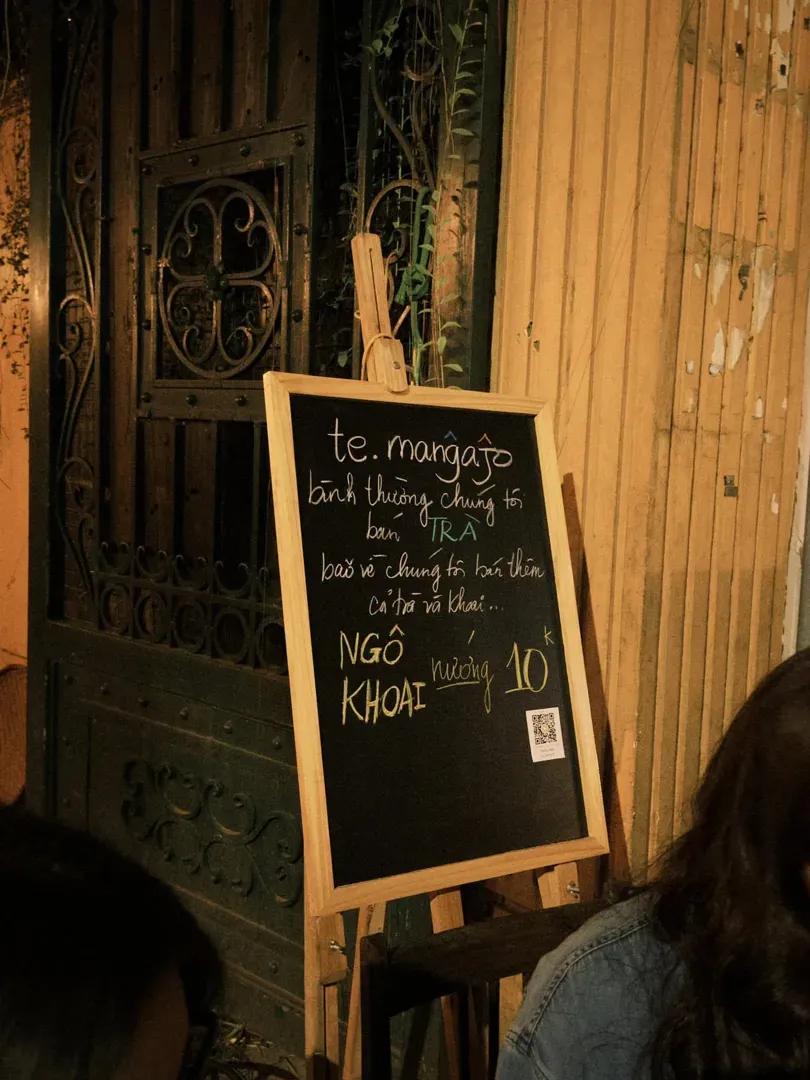 te.mangajo
bình thường chúng tôi
bán TRÀ
bão về chúng tôi bán thêm
cả trà và khoai...
NGÔ
KHOAI nướng 10K